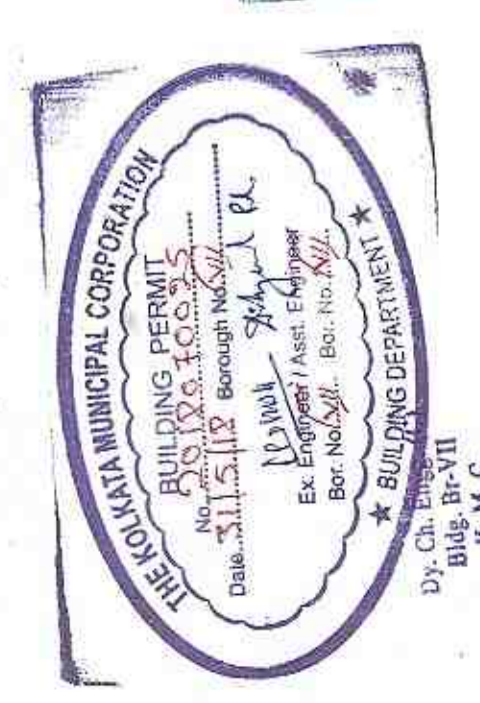 THE KOLKATA MUNICIPAL CORPORATION
BUILDING PERMIT
No. 2018070025
Date. 31/5/18 Borough No. VII
Ex. Engineer / Asst. Engineer
Bor. No. VII Bor. No. VII
★ BUILDING DEPARTMENT ★
Dy. Ch. Engg
Bldg. Br-VII
K. M. C